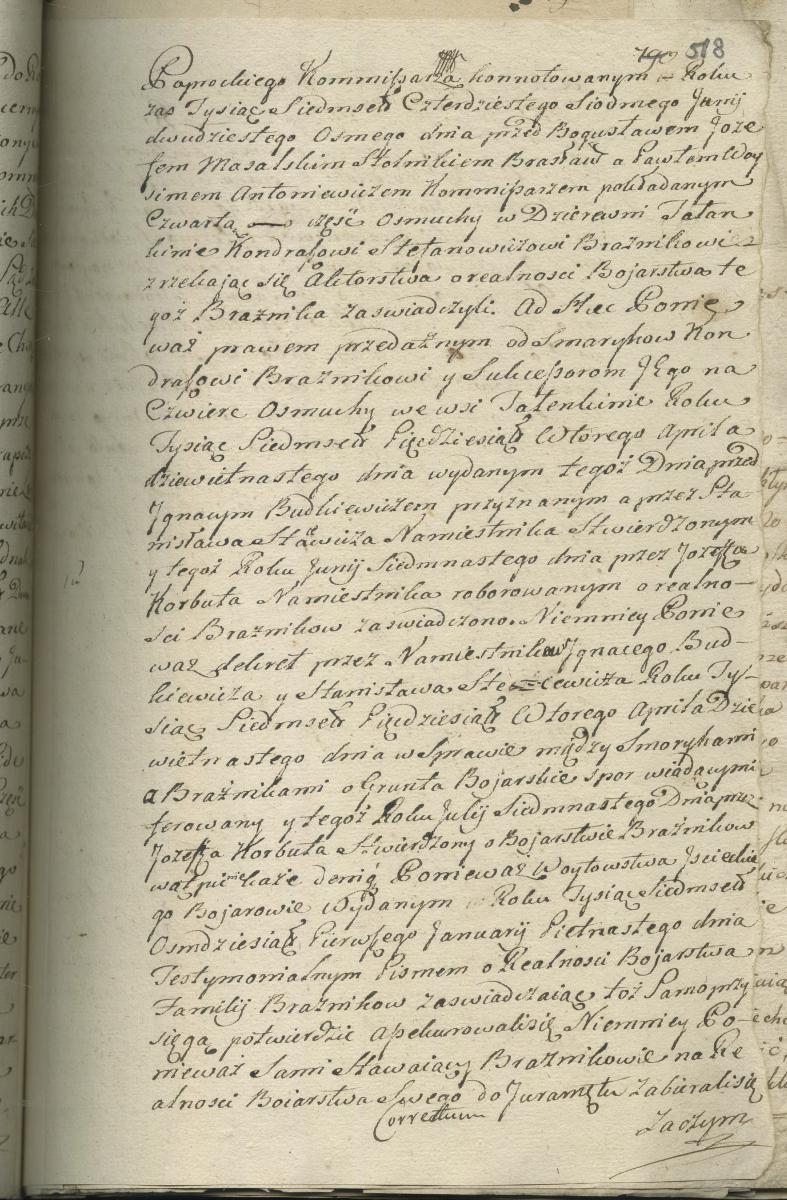 790 518
Paprockiego Kommissarza konnotowanym – Roku
zas Tysiąc Siedmset Czterdziestego Siodmego Junij
dwudziestego Osmego dnia przed Bogusławem Joze
fem Masalskim Stolnikiem Brasław a Pawłem Woy
simem Antoniewiczem Kommissarzem pokładanym
Czwartą — część Osmuchy w Dzierewni Tatan
kinie Kondrasowi Stefanowiczowi Braznikowi
zrzekaiąc się Aktorstwa o realnosci Bojarstwa te
goż Braznika zaswiadczyli. Ad Hæc Ponie
waż prawem przedażnym od Smarykow Kon
drasowi Braznikowi y Sukcessorom Jego na
Czwierc Osmuchy we wsi Tatenkinie Roku
Tysiąc Siedmset Pięcdziesiąt Wtorego Aprila
dziewietnastego dnia wydanym tegoż Dnia przed
Ignacym Budkiewiczem przyznanym a przez Sta
nisława Namiestnika Stwierdzonym
y tegoż Roku Junij Siedmnastego dnia przez Jozefa
Korbuta Namiestnika roborowanym o realno–
sci Braznikow zaswiadczono. Niemniey Ponie
waż dekret przez Namiestnikow Ignacego Bud–
kiewicza y Stanisława Roku Ty–
siąc Siedmset Pięcdziesiąt Wtorego Aprila Dzie
wietnastego dnia w Sprawie między Smorykami
a Braznikami o Grunta Bojarskie spor wiadącymi
ferowany y tegoż Roku Julij Siedmnastego Dnia prze
Jozefa Korbuta Stwierdzony o Bojarstwie Braznikow
wątpic nie każe denią Ponieważ Woytowstwa
go Bojarowie Wydanym Roku Tysiąc Siedmset
Osmdziesiąt Pierwszego Januarij Pietnastego dnia
Testymonialnym Pismem o Realnosci Bojarstwa
Familij Braznikow zaswiadczaiąc toż Samo przy
sięgą potwierdzic apekurowali się Niemniey Po–
nieważ Sami Stawaiący Braznikowie na Re
alnosci Boiarstwa Swego do Juramentu zabierali się
Correctum
Zaczym